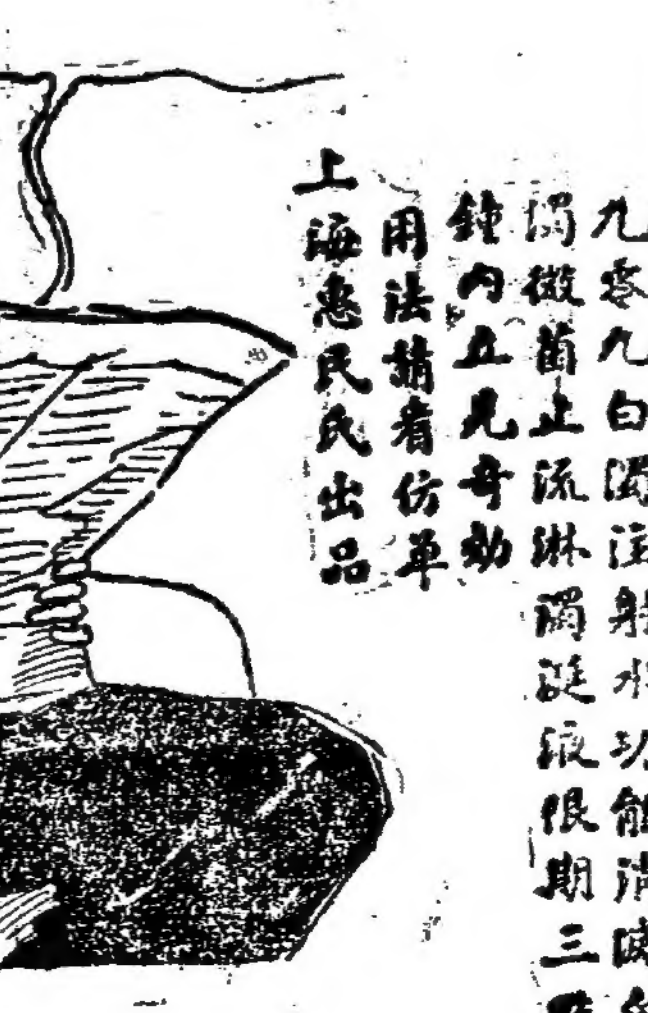 九零九白濁注射水功能消滅
濁微菌止流淋濁涎液限期三點
鐘內立見奇効
用法請看仿单
上海惠民氏出品